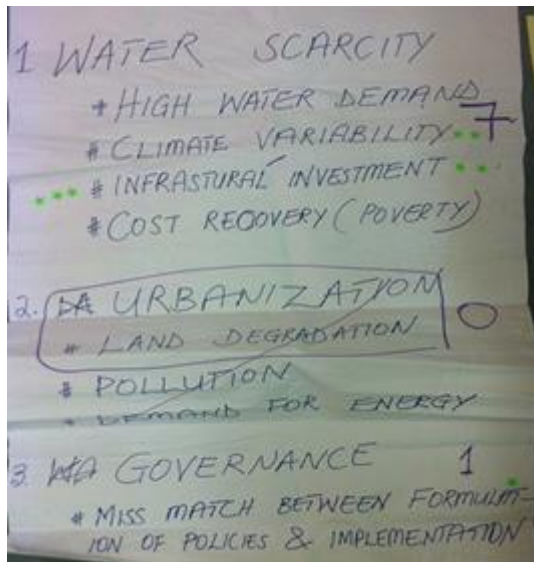 1 WATER SCARCITY
# HIGH WATER DEMAND
7
# CLIMATE VARIABILITY
# INFRASTURAL INVESTMENT
# COST RECOVERY (POVERTY)
2. URBANIZATION
0
# LAND DEGRADATION
# POLLUTION
# DEMAND FOR ENERGY
3 GOVERNANCE 1
# MISS MATCH BETWEEN FORMULAT-
ION OF POLICIES & IMPLEMENTATION